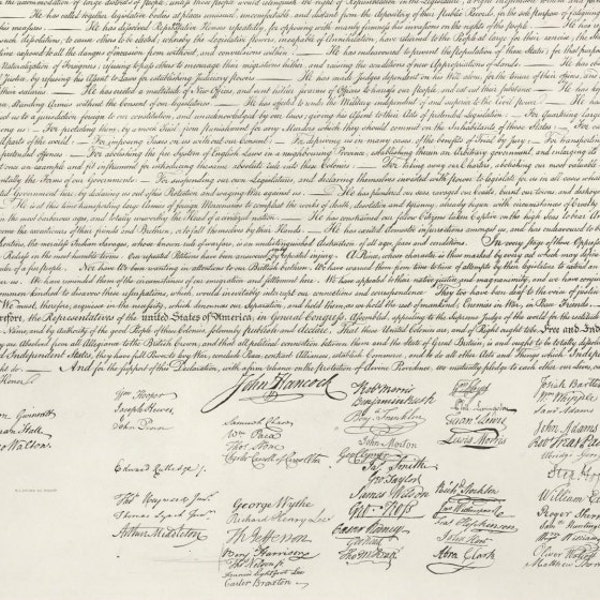 accommodation of large districts of people, unless those people would relinquish the right of Representation in the Legislature, a right
He has called together legislative bodies at places unusual, uncomfortable, and distant from the depository of their public Records, for the sole purpose of
his measures. — He has dissolved Representative Houses repeatedly, for opposing with manly firmness his invasions on the rights of the people. — He has
such dissolutions, to cause others to be elected; whereby the Legislative powers, incapable of Annihilation, have returned to the People at large for their exercise; the
time exposed to all the dangers of invasion from without, and convulsions within. — He has endeavoured to prevent the population of these States; for that purpose
Naturalization of Foreigners; refusing to pass others to encourage their migrations hither, and raising the conditions of new Appropriations of Lands. — He has
Justice, by refusing his Assent to Laws for establishing Judiciary powers. — He has made Judges dependent on his Will alone, for the tenure of their offices, and
their salaries. — He has erected a multitude of New Offices, and sent hither swarms of Officers to harrass our people, and eat out their substance. — He has
Standing Armies without the Consent of our legislatures. — He has affected to render the Military independent of and superior to the Civil power. — He has
us to a jurisdiction foreign to our constitution, and unacknowledged by our laws; giving his Assent to their Acts of pretended Legislation: — For Quartering large
us: — For protecting them, by a mock Trial, from punishment for any Murders which they should commit on the Inhabitants of these States: — For
all parts of the world: — For imposing Taxes on us without our Consent: — For depriving us in many cases, of the benefits of Trial by Jury: — For transporting
pretended offences — For abolishing the free System of English Laws in a neighbouring Province, establishing therein an Arbitrary government, and enlarging
at once an example and fit instrument for introducing the same absolute rule into these Colonies: — For taking away our Charters, abolishing our most valuable
the Forms of our Governments: — For suspending our own Legislatures, and declaring themselves invested with power to legislate for us in all cases
Government here, by declaring us out of his Protection and waging War against us. — He has plundered our seas, ravaged our Coasts, burnt our towns, and
He is at this time transporting large Armies of foreign Mercenaries to compleat the works of death, desolation and tyranny, already begun with circumstances of Cruelty
in the most barbarous ages, and totally unworthy the Head of a civilized nation. — He has constrained our fellow Citizens taken Captive on the high Seas to bear
the executioners of their friends and Brethren, or to fall themselves by their Hands. — He has excited domestic insurrections amongst us, and has endeavoured to
the merciless Indian Savages, whose known rule of warfare, is an undistinguished destruction of all ages, sexes and conditions. In every stage of these
Redress in the most humble terms: Our repeated Petitions have been answered only by repeated injury. A Prince, whose character is thus marked by every act which may
of a free people. Nor have We been wanting in attentions to our Brittish brethren. We have warned them from time to time of attempts by their legislature to extend
us. We have reminded them of the circumstances of our emigration and settlement here. We have appealed to their native justice and magnanimity, and we have conjured
common kindred to disavow these usurpations, which, would inevitably interrupt our connections and correspondence. They too have been deaf to the voice of
We must, therefore, acquiesce in the necessity, which denounces our Separation, and hold them, as we hold the rest of mankind, Enemies in War, in Peace Friends. —
the Representatives of the united States of America, in General Congress, Assembled, appealing to the Supreme Judge of the world for the
Name, and by Authority of the good People of these Colonies, solemnly publish and declare, That these United Colonies are, and of Right ought to be Free and
are Absolved from all Allegiance to the British Crown, and that all political connection between them and the State of Great Britain, is and ought to be totally
Independent States, they have full Power to levy War, conclude Peace, contract Alliances, establish Commerce, and to do all other Acts and Things which
do. — And for the support of this Declaration, with a firm reliance on the protection of divine Providence, we mutually pledge to each other our
Honor.
Gwinnett
Hall
Walton.
Wm Hooper
Joseph Hewes,
John Penn
Edward Rutledge /.
Thos Heyward Junr.
Thomas Lynch Junr.
Arthur Middleton
John Hancock
Samuel Chase
Wm Paca
Thos Stone
Charles Carroll of Carrollton
George Wythe
Richard Henry Lee
Th Jefferson
Benj Harrison
Thos Nelson jr.
Francis Lightfoot Lee
Carter Braxton
Robt Morris
Benjamin Rush
Benj Franklin
John Morton
Geo Clymer
Jas Smith
Geo Taylor
James Wilson
Geo. Ross
Caesar Rodney
Geo Read
Tho M:Kean
Wm Floyd
Phil. Livingston
Frans Lewis
Lewis Morris
Richd Stockton
Jno Witherspoon
Fras Hopkinson
John Hart
Abra Clark
Josiah Bartlett
Wm Whipple
Saml Adams
John Adams
Robt Treat Paine
Elbridge Gerry
Step. Hopkins
William Ellery
Roger Sherman
Saml Huntington
Wm Williams
Oliver Wolcott
Matthew Thornton